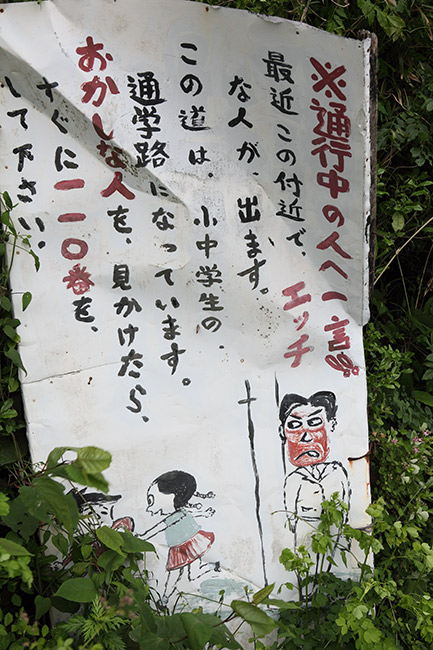 ※通行中の人へ一言!!!
最近この付近で、エッチ
な人が、出ます。
この道は、小中学生の、
通学路になっています。
おかしな人を、見かけたら、
すぐに一一〇番を、
して下さい。